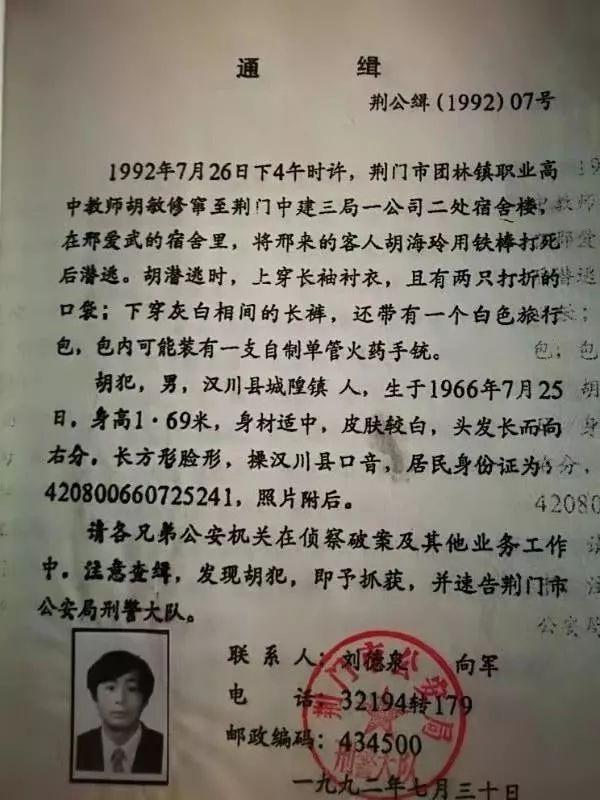 通 缉
荆公缉(1992)07号
1992年7月26日下4午时许，荆门市团林镇职业高
中教师胡敏修窜至荆门中建三局一公司二处宿舍楼，
在邢爱武的宿舍里，将邢来的客人胡海玲用铁棒打死
后潜逃。胡潜逃时，上穿长袖衬衣，且有两只打折的
口袋；下穿灰白相间的长裤，还带有一个白色旅行
包，包内可能装有一支自制单管火药手铳。
胡犯，男，汉川县城隍镇 人，生于1966年7月25
日，身高1·69米，身材适中，皮肤较白，头发长而向
右分，长方形脸形，操汉川县口音，居民身份证为：
420800660725241，照片附后。
请各兄弟公安机关在侦察破案及其他业务工作
中，注意查缉，发现胡犯，即予抓获，并速告荆门市
公安局刑警大队。
联系人：刘德泉 向军
电 话：32194转179
邮政编码：434500
一九九二年七月三十日
荆门市公安局
刑警大队